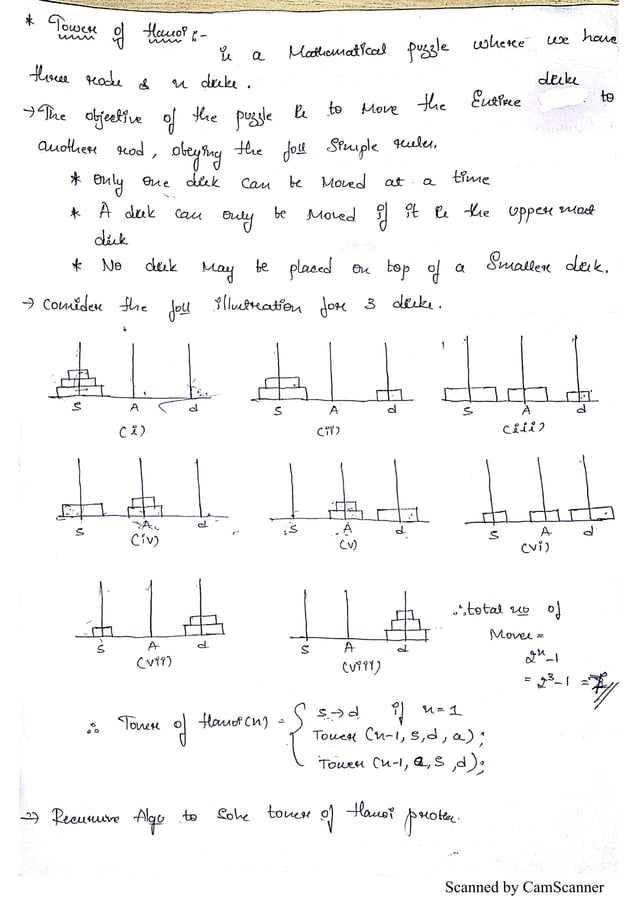 * Tower of Hanoi :-
is a Mathematical puzzle where we have
three rods & n disks.
→ The objective of the puzzle is to Move the Entire disks to
another rod, obeying the foll simple rules.
* Only One disk can be Moved at a time
* A disk can only be Moved if it is the upper most
disk
* No disk May be placed on top of a Smaller disk.
→ Consider the foll illustration for 3 disks.
S A d S A d S A d
(i) (ii) (iii)
S A d S A d S A d
(iv) (v) (vi)
S A d S A d
(vii) (viii)
∴ total no of
Moves =
2ⁿ-1
= 2³-1 = 7
∴ Tower of Hanoi(n) = { S→d if n=1
Tower (n-1, s, d, a);
Tower (n-1, a, s, d);
→ Recursive Algo to Solve tower of Hanoi
Scanned by CamScanner